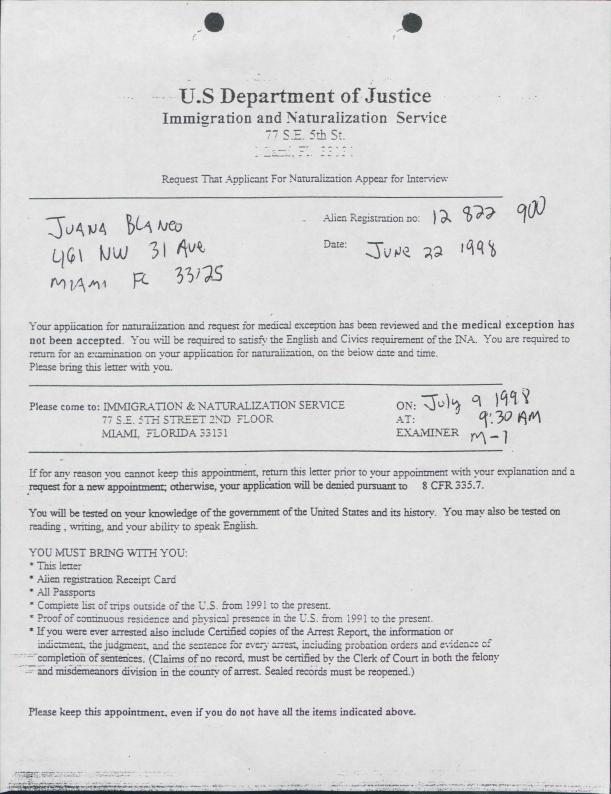 U.S Department of Justice
Immigration and Naturalization Service
77 S.E. 5th St.
Miami, FL 33131
Request That Applicant For Naturalization Appear for Interview
JUANA BLANCO
461 NW 31 Ave
MIAMI FL 33125
Alien Registration no: 12 822 900
Date: JUNE 22 1998
Your application for naturalization and request for medical exception has been reviewed and the medical exception has
not been accepted. You will be required to satisfy the English and Civics requirement of the INA. You are required to
return for an examination on your application for naturalization, on the below date and time.
Please bring this letter with you.
Please come to: IMMIGRATION & NATURALIZATION SERVICE
77 S.E. 5TH STREET 2ND FLOOR
MIAMI, FLORIDA 33131
ON: July 9 1998
AT: 9:30 AM
EXAMINER M-1
If for any reason you cannot keep this appointment, return this letter prior to your appointment with your explanation and a
request for a new appointment; otherwise, your application will be denied pursuant to 8 CFR 335.7.
You will be tested on your knowledge of the government of the United States and its history. You may also be tested on
reading , writing, and your ability to speak English.
YOU MUST BRING WITH YOU:
* This letter
* Alien registration Receipt Card
* All Passports
* Complete list of trips outside of the U.S. from 1991 to the present.
* Proof of continuous residence and physical presence in the U.S. from 1991 to the present.
* If you were ever arrested also include Certified copies of the Arrest Report, the information or
indictment, the judgment, and the sentence for every arrest, including probation orders and evidence of
completion of sentences. (Claims of no record, must be certified by the Clerk of Court in both the felony
and misdemeanors division in the county of arrest. Sealed records must be reopened.)
Please keep this appointment, even if you do not have all the items indicated above.